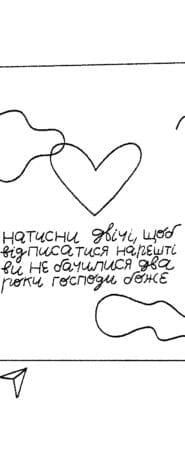 натисни двічі, щоб
відписатися нарешті
ви не бачилися два
роки господи боже